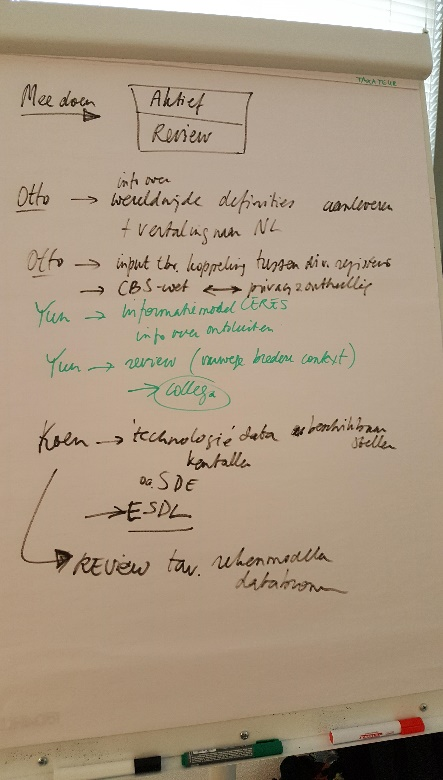 TAXATEUR
Mee doen → Aktief
Review
Otto → info over
wereldwijde definities aanleveren
+ vertaling naar NL
Otto → input tbv. koppeling tussen div. registers
→ CBS-wet ↔
Yun → informatiemodel CERES
info over ontsluiten
Yun → review (vanwege bredere context)
→ collega
Koen → technologie data beschikbaar
stellen
kentallen
oa SDE
→ ESDL
→ REVIEW tav. rekenmodellen
databronnen